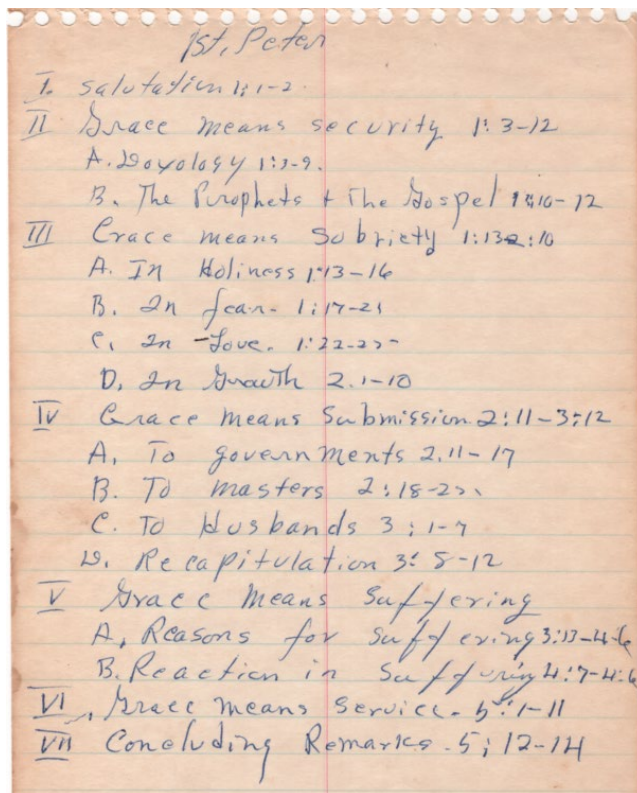 1st, Peter
I. Salutation 1:1-2
II Grace means security 1:3-12
A. Doxology 1:3-9.
B. The Prophets + The Gospel 1:10-12
III Grace means Sobriety 1:13-2:10
A. In Holiness 1:13-16
B. In fear. 1:17-21
C. In Love. 1:22-25
D. In Growth 2.1-10
IV Grace means Submission 2:11-3:12
A. To governments 2.11-17
B. To masters 2:18-25.
C. To Husbands 3:1-7
D. Recapitulation 3:8-12
V Grace Means Suffering
A, Reasons for Suffering 3:13-4-6
B. Reaction in Suffering 4:7-4:
VI, Grace means Service. 5:1-11
VII Concluding Remarks. 5:12-14